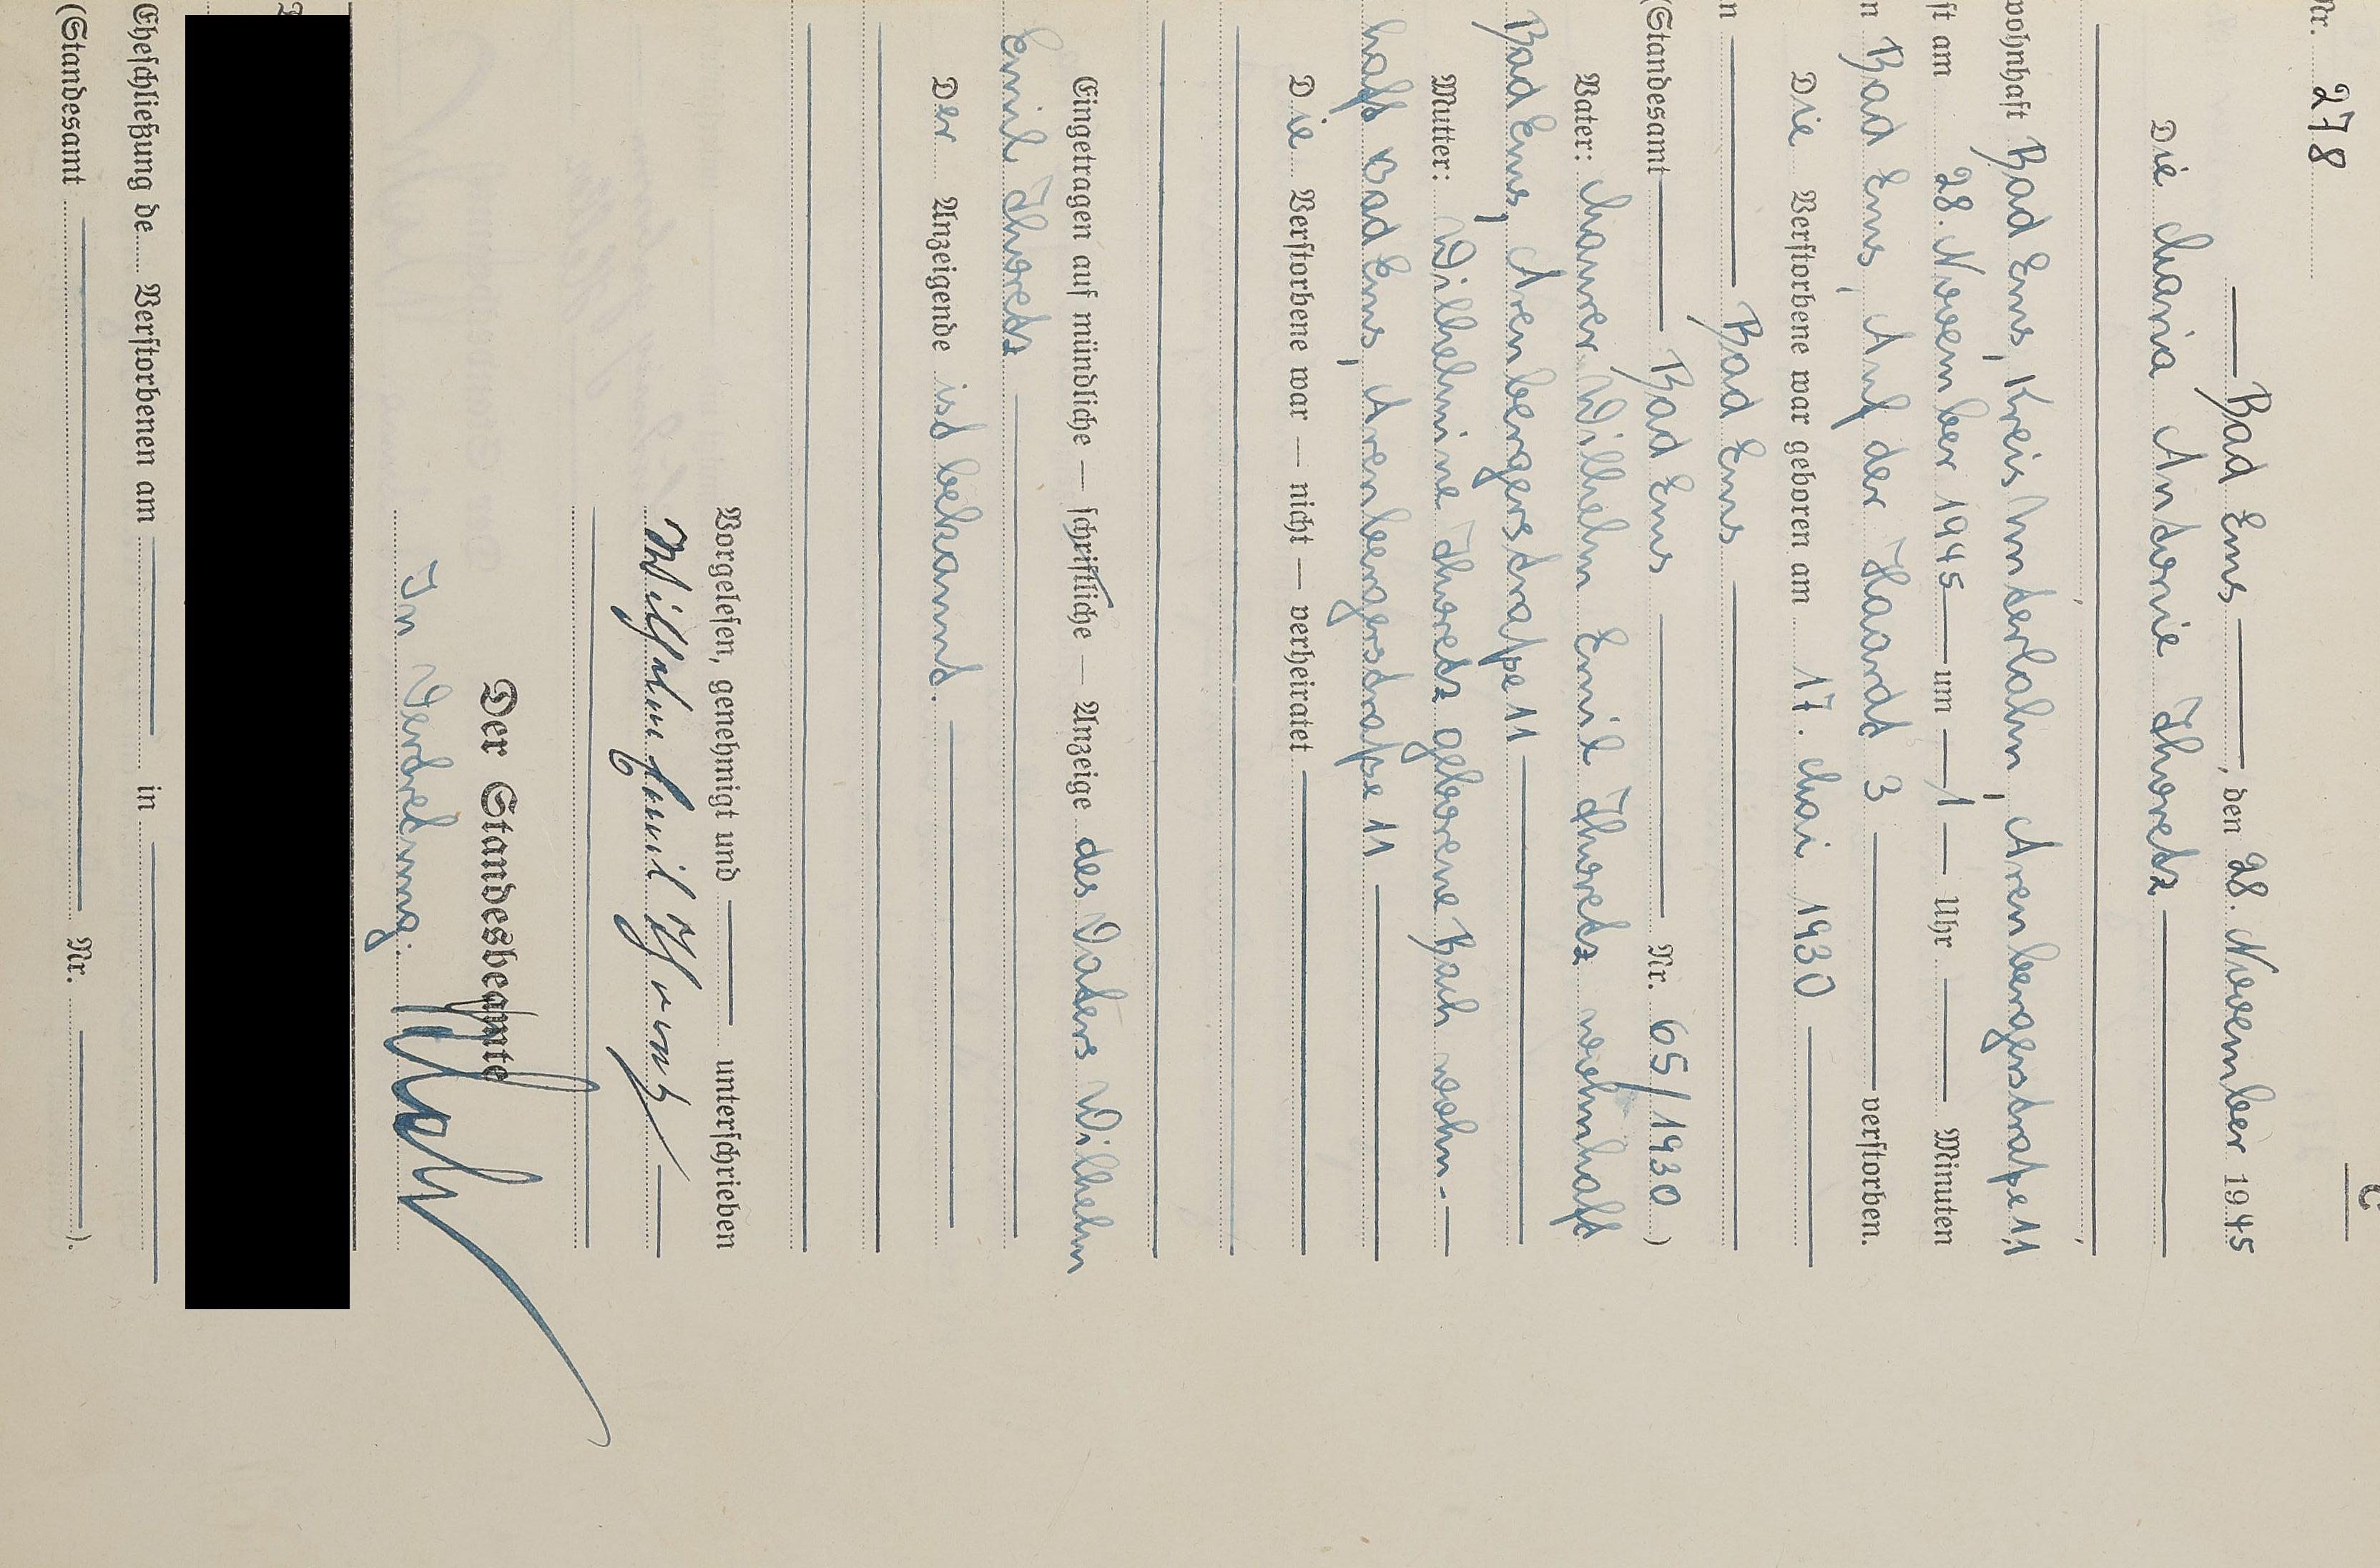 C
Nr. 278
Bad Ems, den 28. November 1945
Die Maria Antonie Thoretz
wohnhaft Bad Ems, Kreis Unterlahn, Arenbergerstraße 11
ist am 28. November 1945 um 1 Uhr Minuten
in Bad Ems, Auf der Haardt 3 verstorben.
Die Verstorbene war geboren am 17. Mai 1930
in Bad Ems
(Standesamt Bad Ems Nr. 65/1930)
Vater: Maurer Wilhelm Emil Thoretz wohnhaft
Bad Ems, Arenbergerstraße 11
Mutter: Wilhelmine Thoretz geborene Bach wohn-
haft Bad Ems, Arenbergerstraße 11
Die Verstorbene war — nicht — verheiratet
Eingetragen auf mündliche — schriftliche — Anzeige des Vaters Wilhelm
Emil Thoretz
Der Anzeigende ist bekannt.
Vorgelesen, genehmigt und unterschrieben
Wilhelm Emil Thoretz
Der Standesbeamte
In Vertretung:
Eheschließung de Verstorbenen am in
(Standesamt Nr. ).